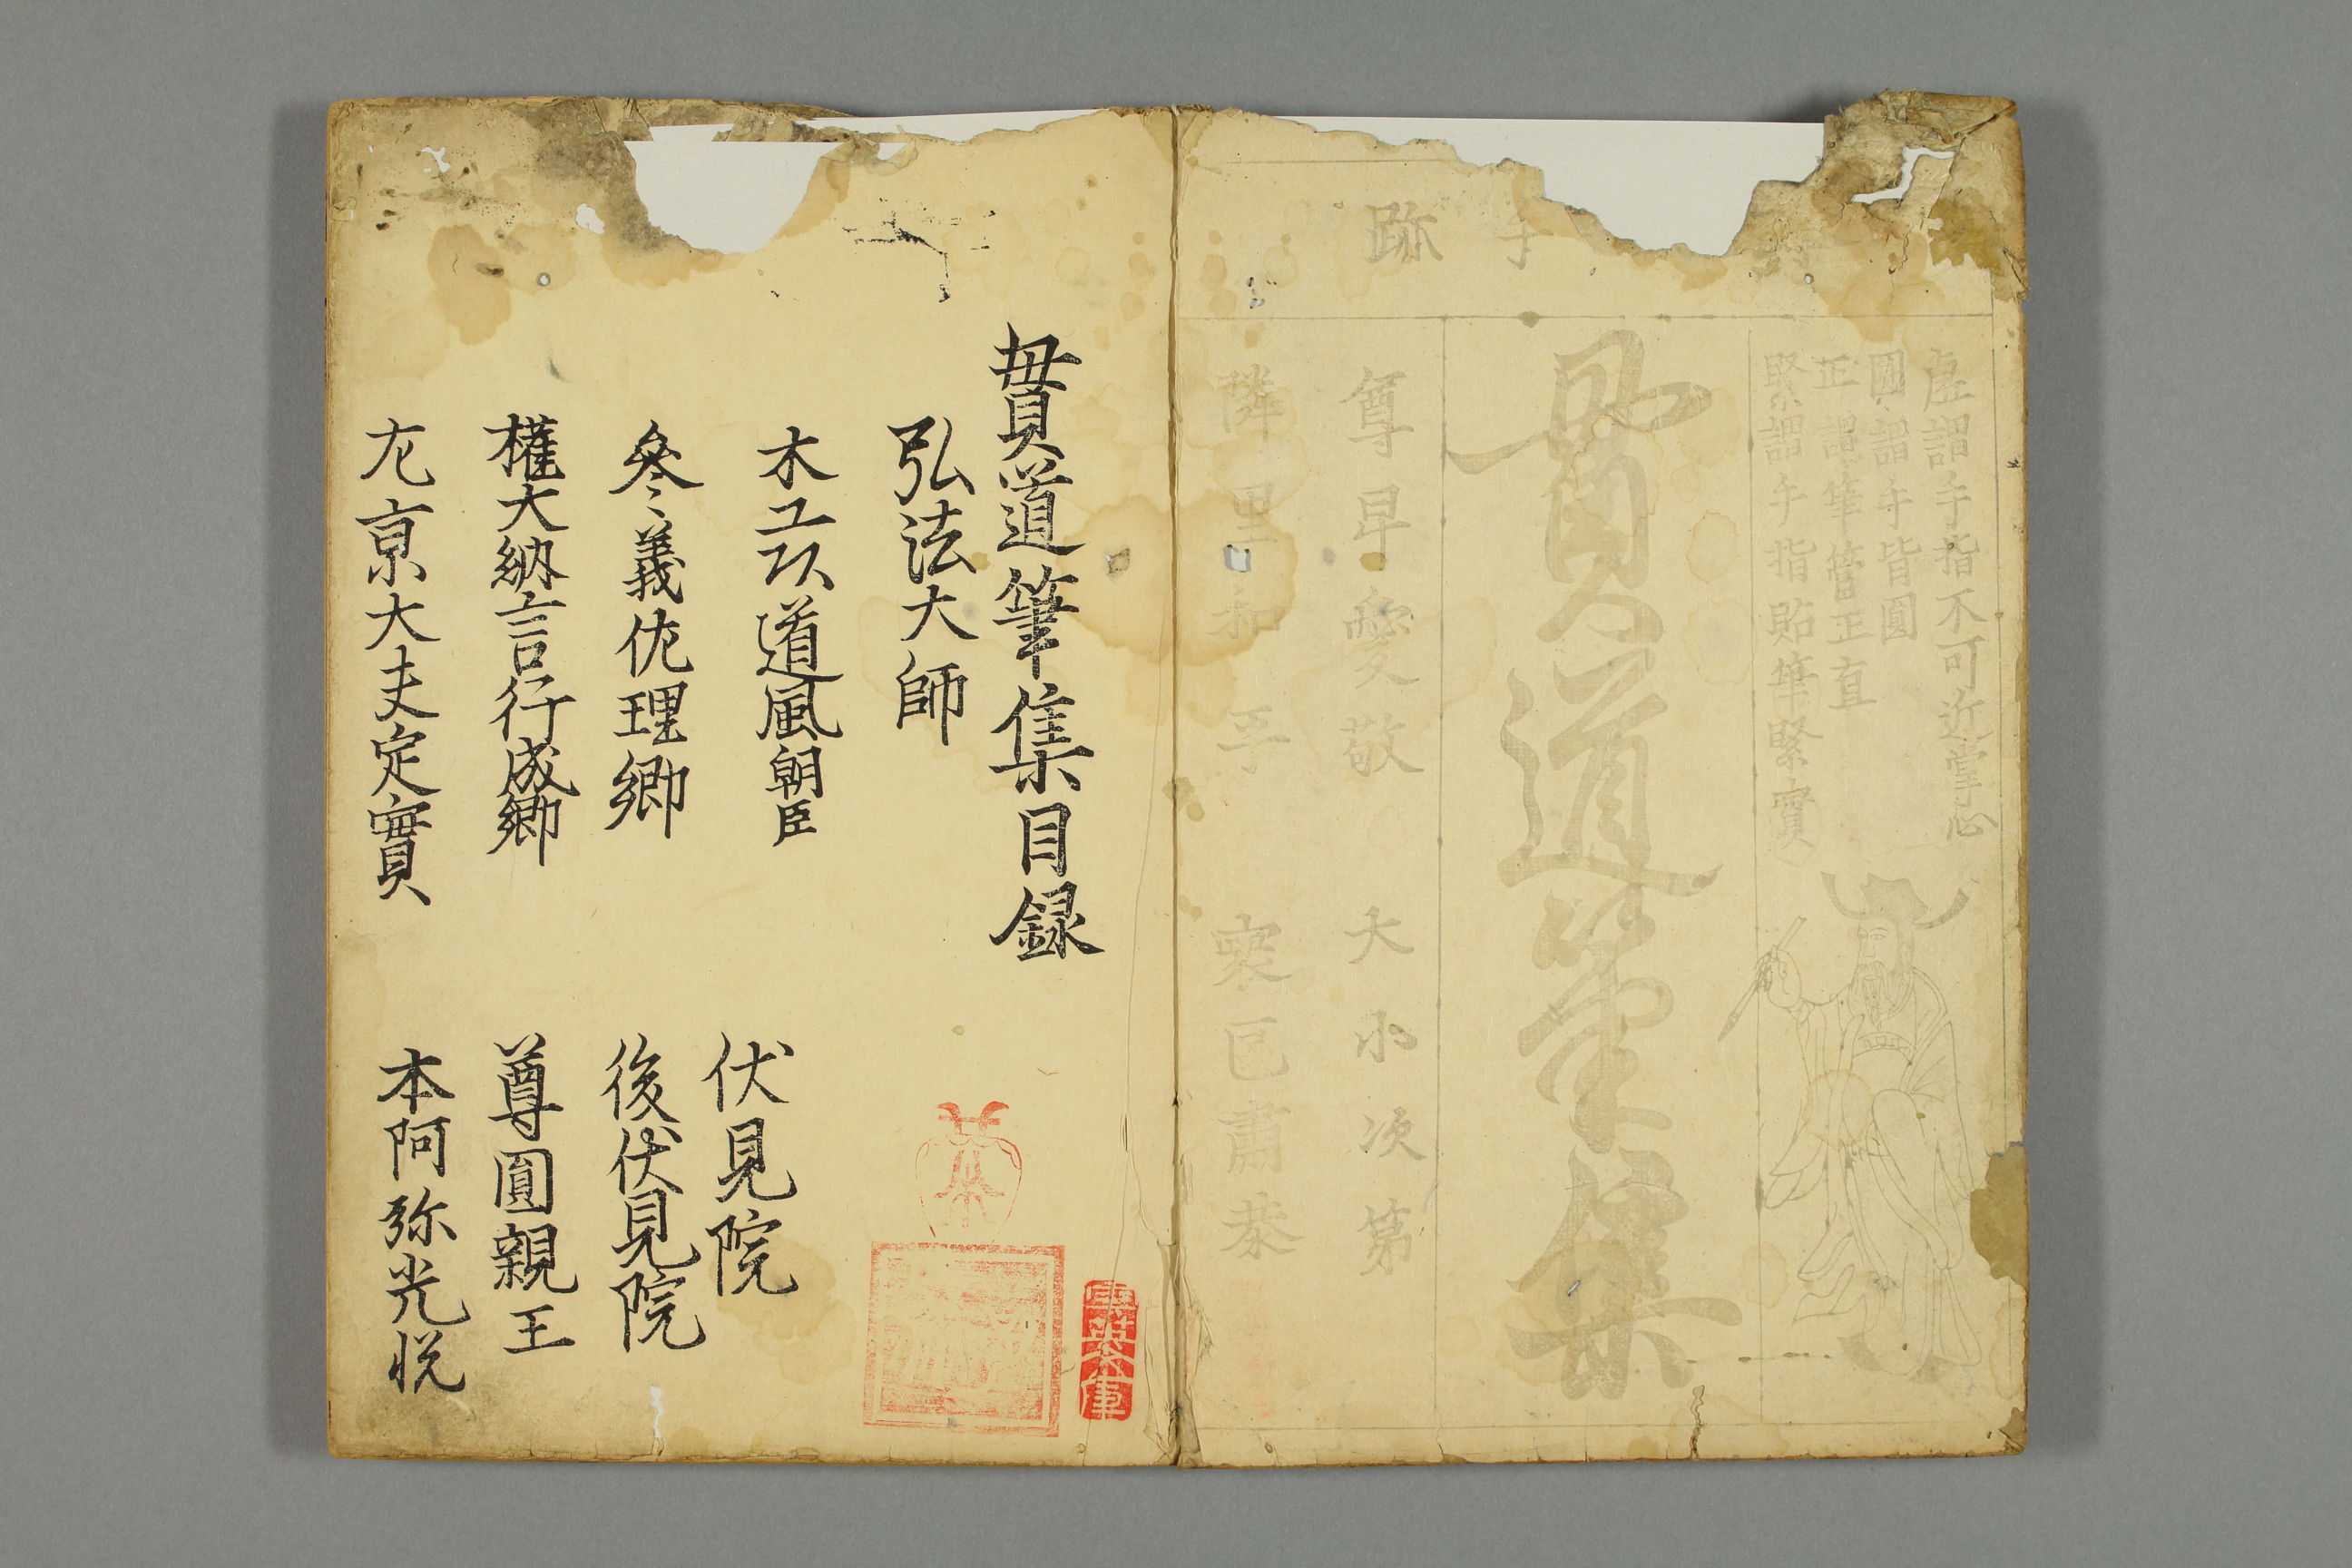 手跡
虚謂手指不可近掌心
圓謂手皆圓
正謂筆管正直
緊謂手指貼筆緊實
貫道筆集
尊卑愛敬 大小次第
隣里和 肅恭
貫道筆集目録
弘法大師
木工頭道風朝臣
叅義佐理卿
權大納言行成卿
左京大夫定實
伏見院
後伏見院
尊圓親王
本阿弥光悦
雲英文庫